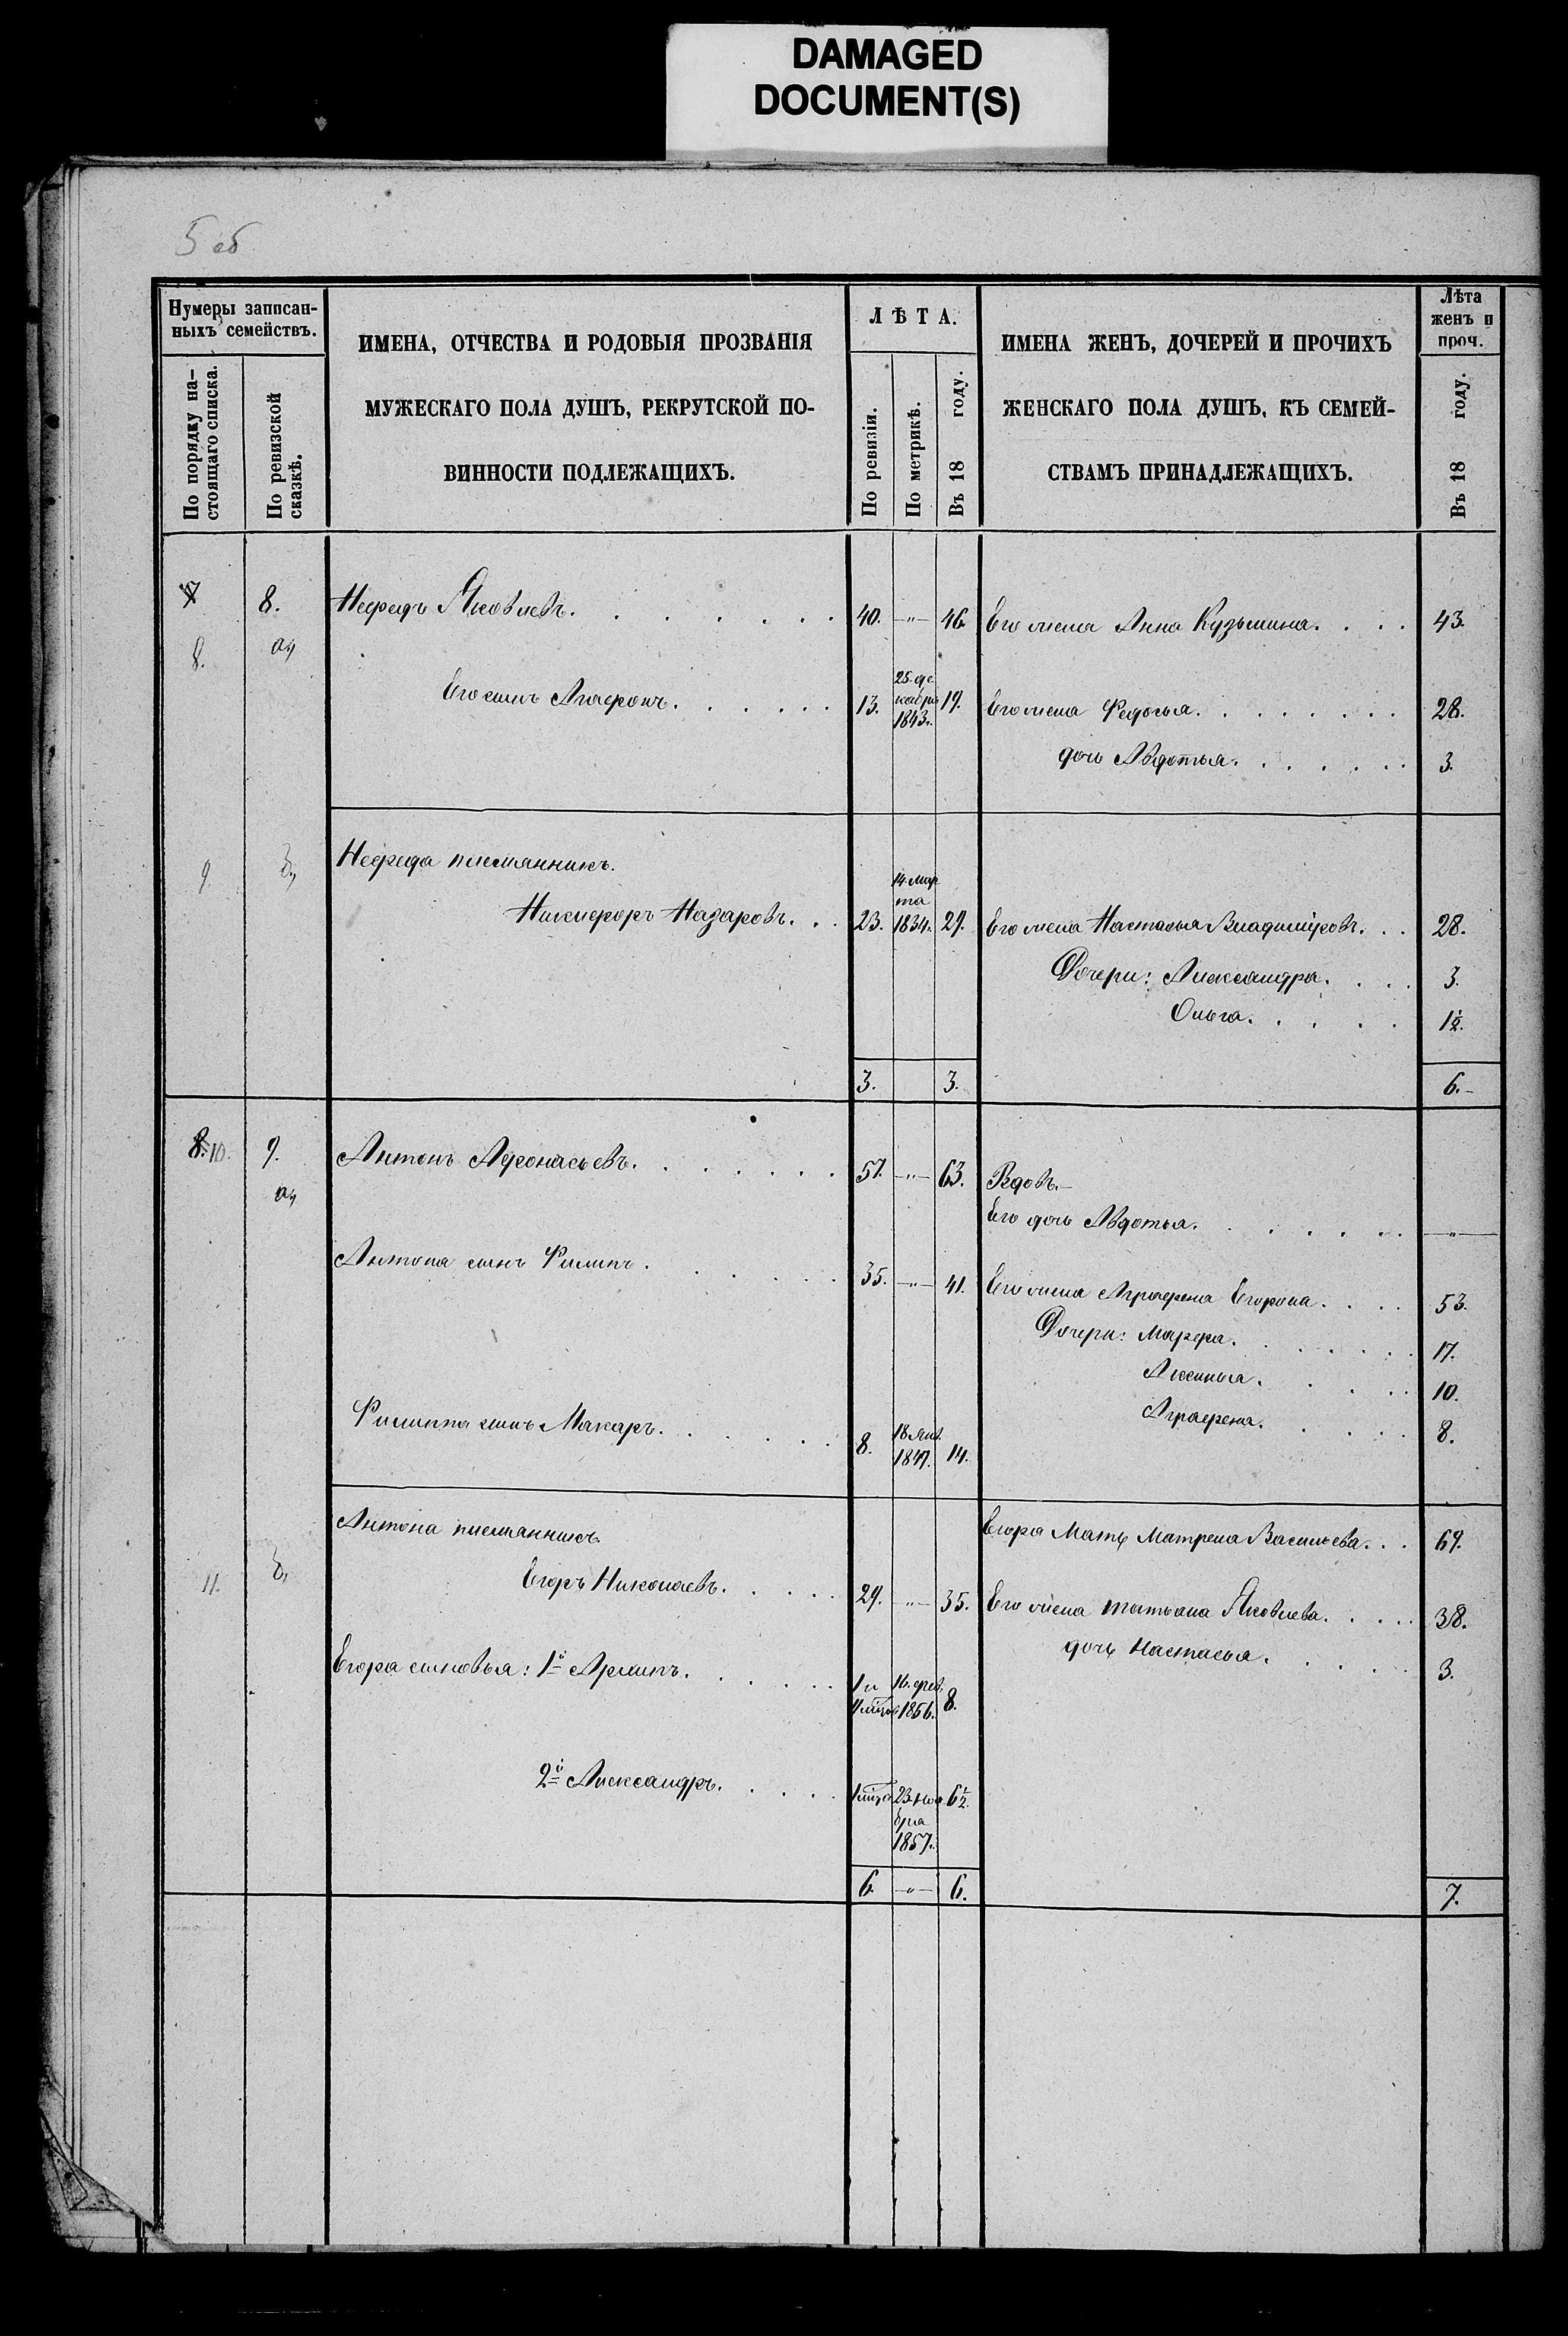 DAMAGED
DOCUMENT(S)
5 об
Нумеры записан-
ныхъ семействъ.
По порядку на-
стоящаго списка.
По ревизской
сказкѣ.
ИМЕНА, ОТЧЕСТВА И РОДОВЫЯ ПРОЗВАНІЯ
МУЖЕСКАГО ПОЛА ДУШЪ, РЕКРУТСКОЙ ПО-
ВИННОСТИ ПОДЛЕЖАЩИХЪ.
ЛѢТА.
По ревизіи.
По метрикѣ.
Въ 18 году.
ИМЕНА ЖЕНЪ, ДОЧЕРЕЙ И ПРОЧИХЪ
ЖЕНСКАГО ПОЛА ДУШЪ, КЪ СЕМЕЙ-
СТВАМЪ ПРИНАДЛЕЖАЩИХЪ.
Лѣта
женъ и
проч.
Въ 18 году.
7 8. Нефедъ Яковлевъ. 40. -"- 46. Его жена Анна Кузьмина. 43.
8. а,
Его сынъ Агафонъ. 13. 25. де
кабря
1843. 19. Его жена Федосья. 28.
дочь Авдотья. 3.
9 б,
Нефеда племянникъ.
Никифоръ Назаровъ. 23. 14. мар
та
1834. 29. Его жена Настасья Владимірова. 28.
Дочери: Александра. 3.
Ольга. 1½.
3. 3. 6.-
8. 10. 9. Антонъ Афонасьевъ. 57. -"- 63. Вдовъ.-
а,
Его дочь Авдотья. -"-
Антона сынъ Филипъ. 35. -"- 41. Его жена Аграфена Егорова. 53.
Дочери: Марфа. 17.
Аксинья. 10.
Аграфена. 8.
Филиппа сынъ Макаръ. 8. 18 Янв.
1849. 14.
Антона племянникъ
Егора Мать Матрена Васильева. 69.
11. б,
Егоръ Николаевъ. 29. -"- 35. Его жена Татьяна Яковлева. 38.
дочь Настасья. 3.
Егора сыновья: 1й 16. фев.
1856. 8.
2й Александръ. 23. ноя
бря
1857. 6½.
6. -"- 6. 7.